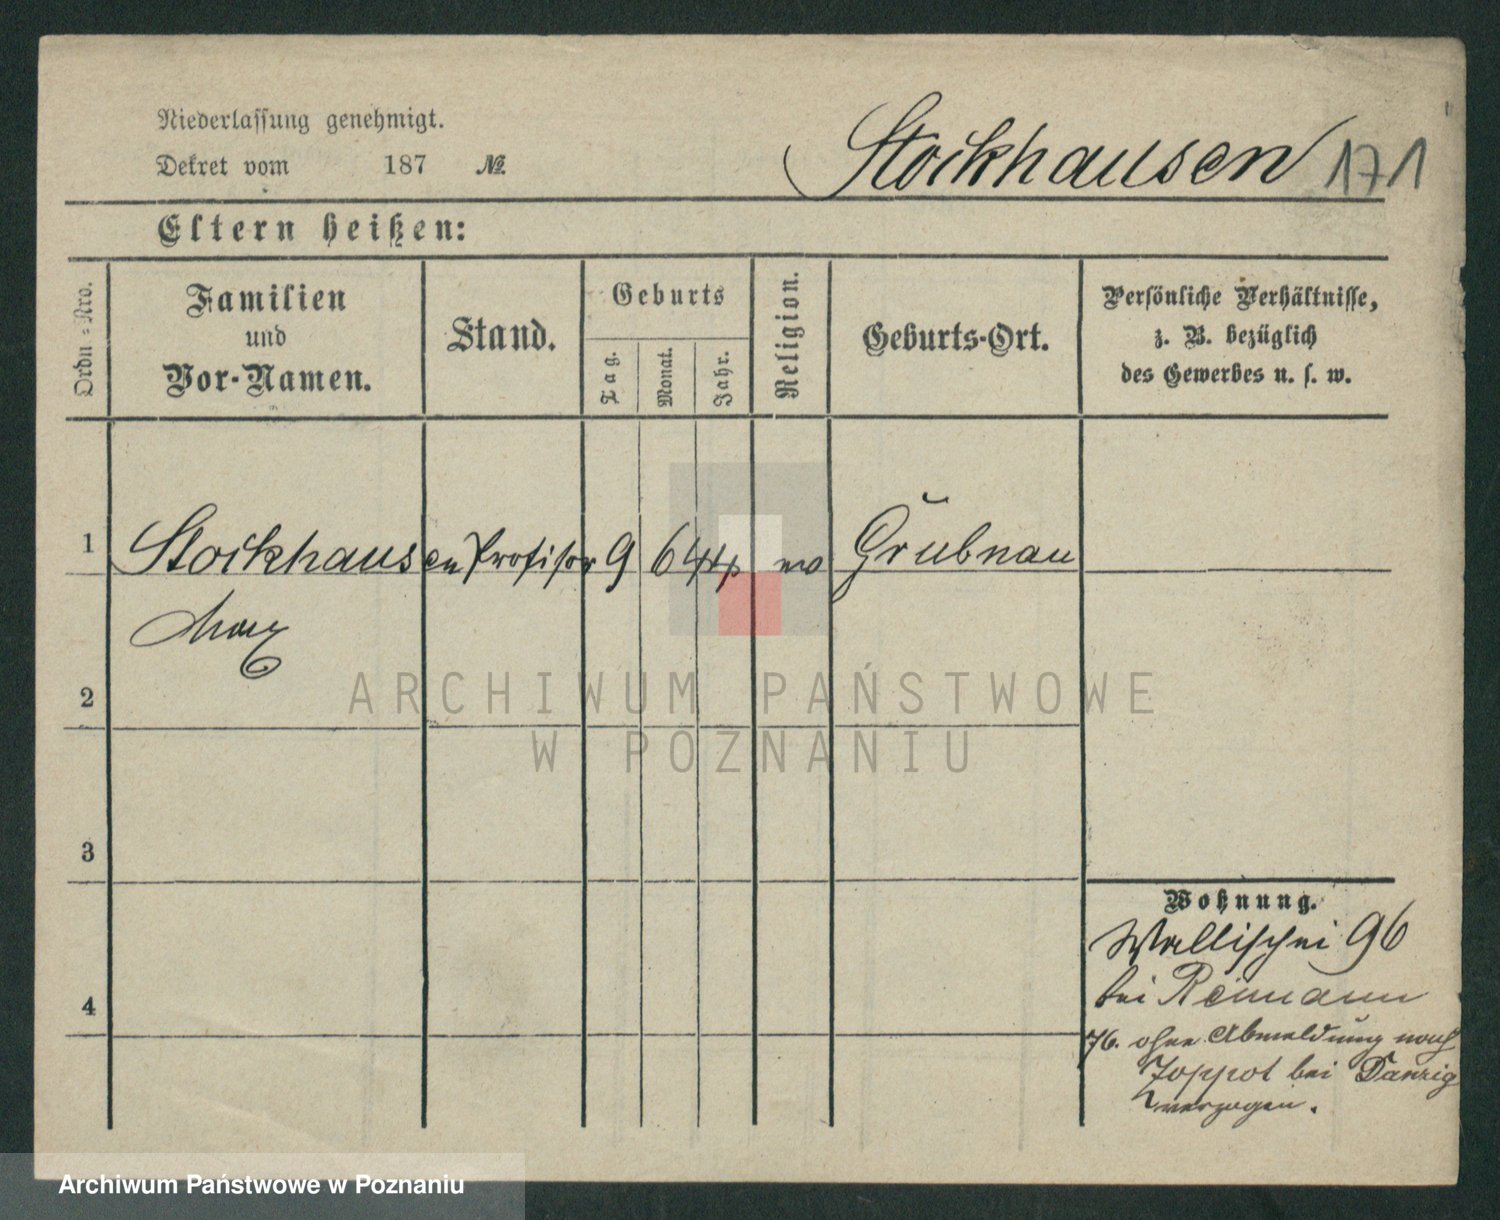 Niederlassung genehmigt.
Stockhausen 171
Dekret vom 187 №
Eltern heißen:
Ordn.-Nro.
Familien
und
Vor-Namen.
Stand.
Geburts
Tag.
Monat.
Jahr.
Religion.
Geburts-Ort.
Persönliche Verhältnisse,
z. B. bezüglich
des Gewerbes u. s. w.
1 Stockhausen Profisor 9 6 44 Grubnau
Max
2
ARCHIWUM PAŃSTWOWE
W POZNANIU
3
Wohnung.
Wallischei 96
bei Reimann
4
76. ohne Abmeldung nach
Zoppot bei Danzig
verzogen.
Archiwum Państwowe w Poznaniu